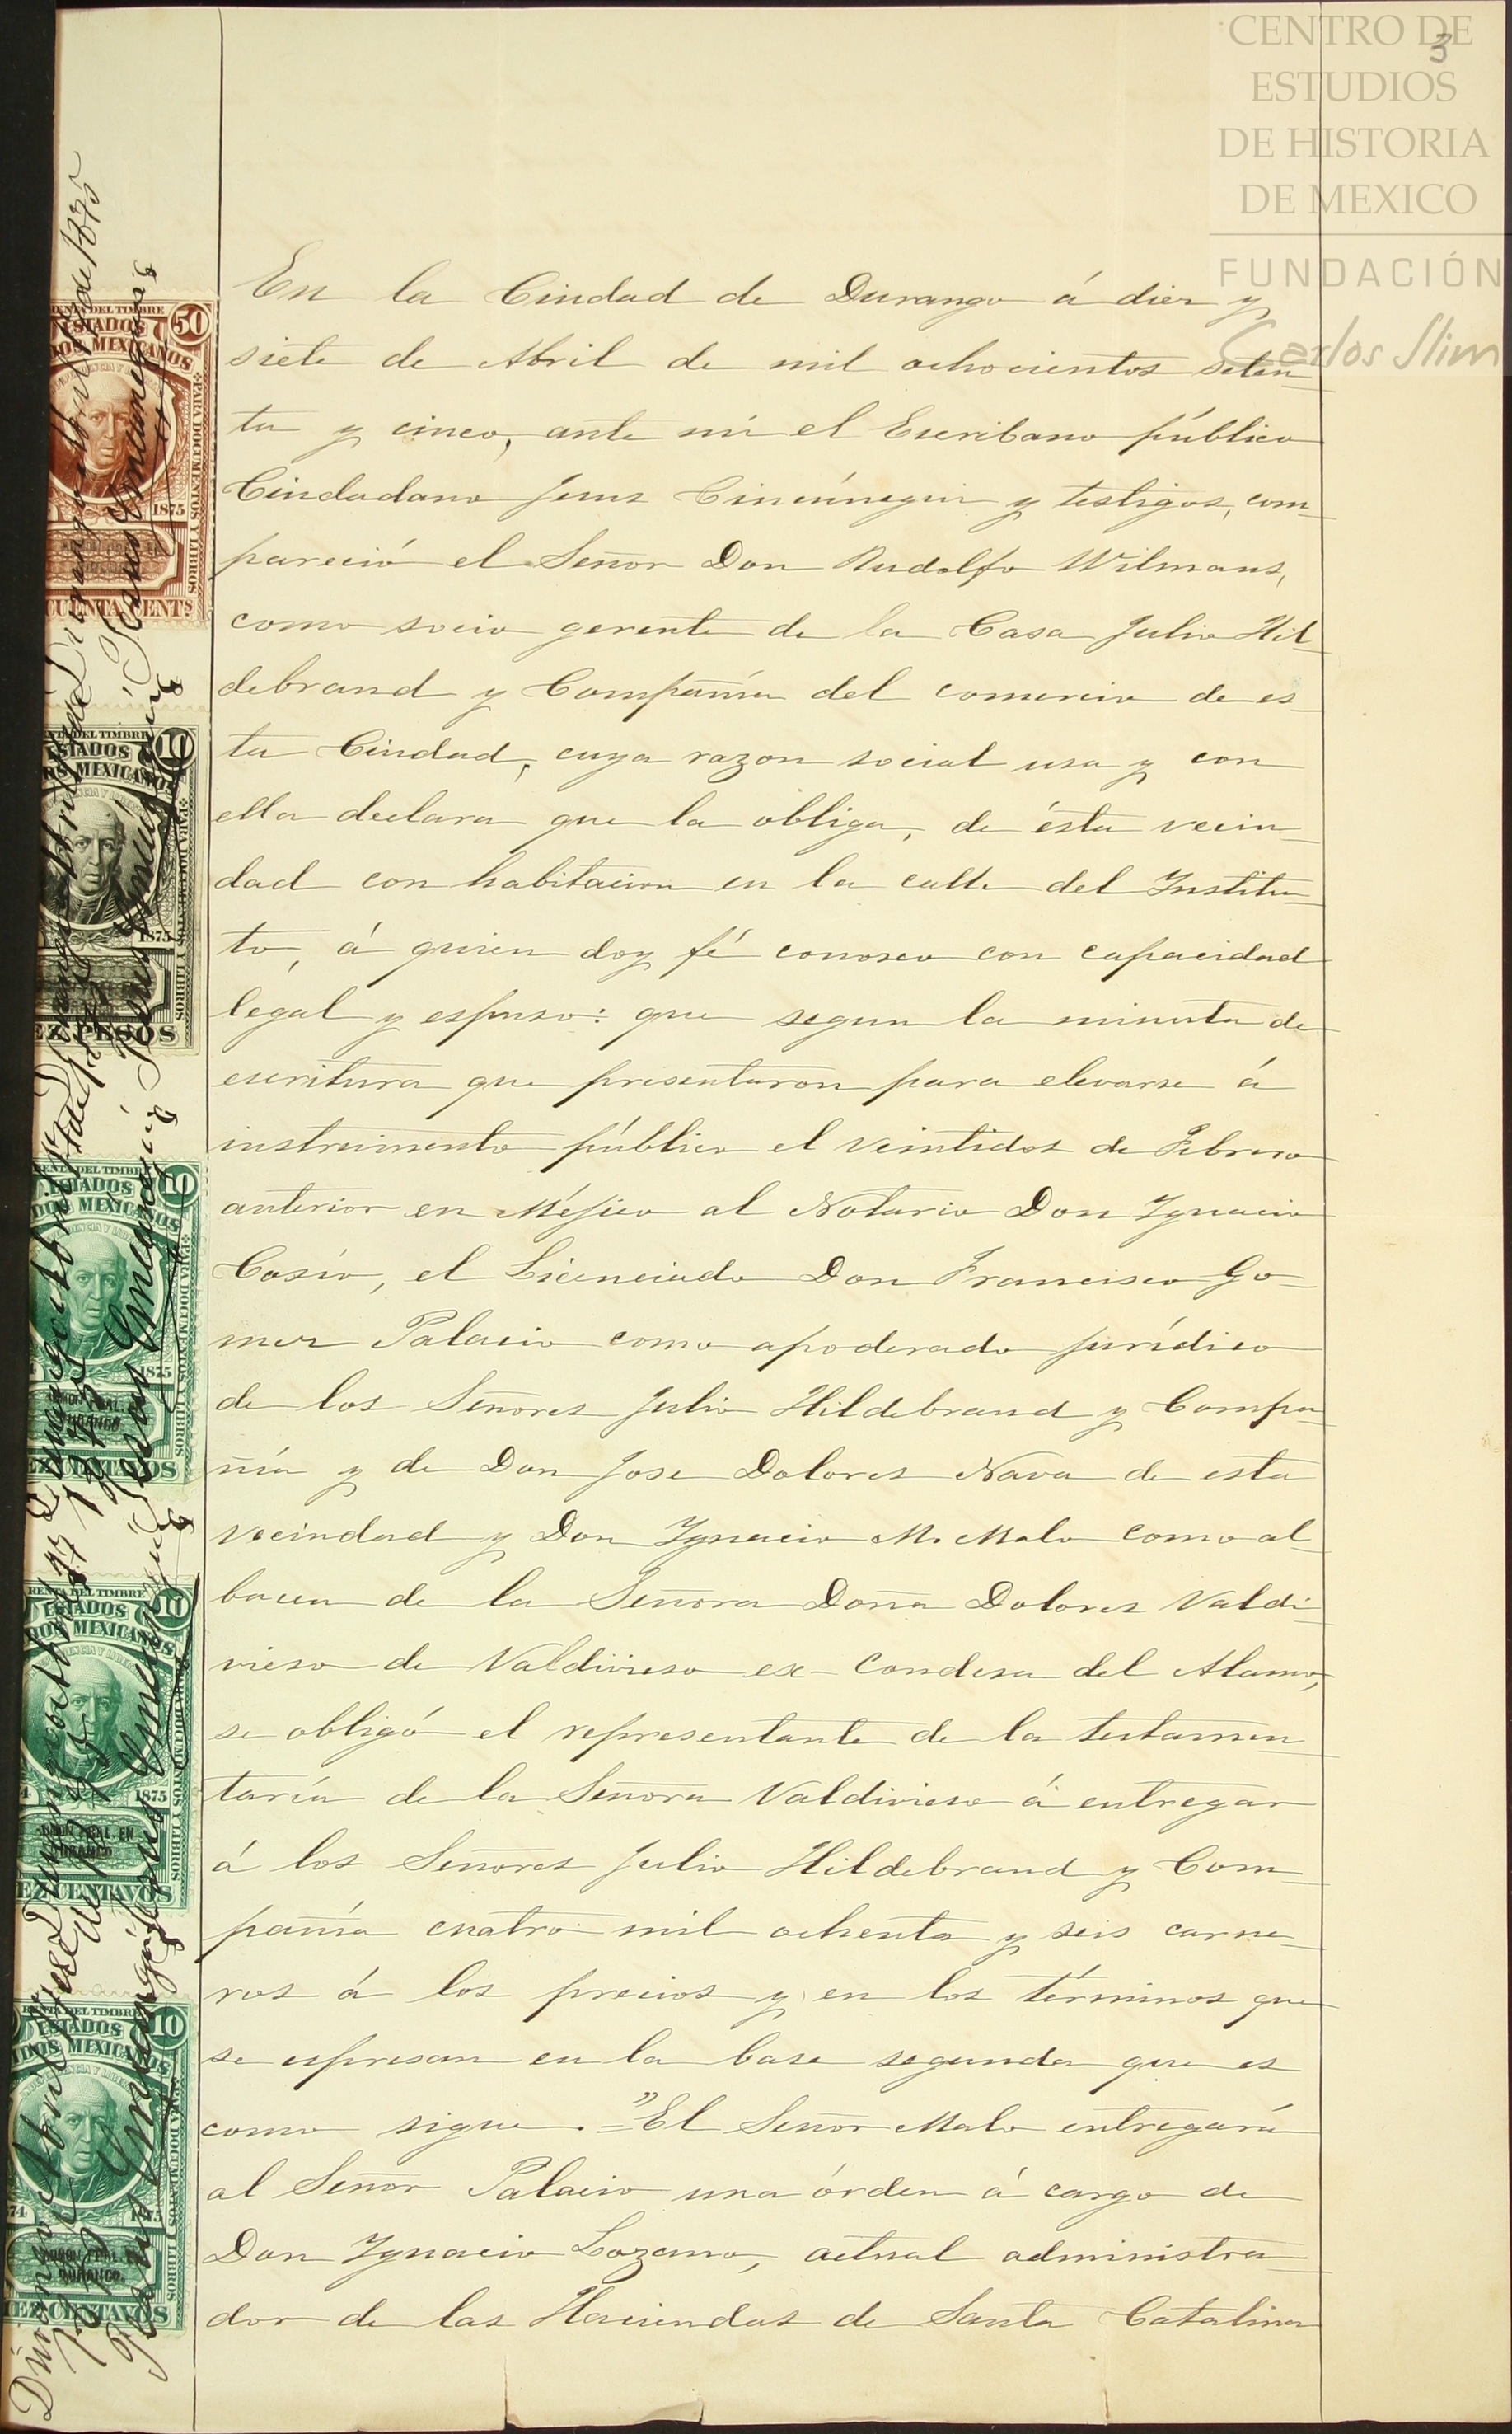 CENTRO DE
ESTUDIOS
DE HISTORIA
DE MEXICO
FUNDACIÓN
Carlos Slim
3
En la Ciudad de Durango á diez y
siete de Abril de mil ochocientos seten-
ta y cinco, ante mi el Escribano público
Ciudadano Jesus Cincúnegui y testigos, com-
pareció el Señor Don Rudolfo Wilmans,
como socio gerente de la Casa Julio Hil-
debrand y Compañía del comercio de es-
ta Ciudad, cuya razon social usa y con
ella declara que la obliga, de ésta vecin-
dad con habitacion en la calle del Institu-
to, á quien doy fé conosco con capacidad
legal y espuso: que segun la minuta de
escritura que presentaron para elevarse á
instrumento público el veintidos de Febrero
anterior en Méjico al Notario Don Ygnacio
Cosío, el Licenciado Don Francisco Go-
mez Palacio como apoderado jurídico
de los Señores Julio Hildebrand y Compa-
ñía y de Don Jose Dolores Nava de esta
vecindad y Don Ygnacio M. Malo como al-
bacea de la Señora Doña Dolores Valdi-
vieso de Valdivieso ex-condesa del Alamo,
se obligó el representante de la testamen-
taría de la Señora Valdivieso á entregar
á los Señores Julio Hildebrand y Com-
pañía cuatro mil ochenta y seis carne-
ros á los precios y en los términos que
se espresan en la base segunda que es
como sigue.="El Señor Malo entregará
al Señor Palacio una órden á cargo de
Don Ygnacio Lozano, actual administra-
dor de las Haciendas de Santa Catalina
RENTA DEL TIMBRE
ESTADOS
MEXICANOS
50
PARA DOCUMENTOS Y LIBROS
1875
CUENTA CENTS
Durango Abril 17 de 1875
Jesus Cincunegui
DEL TIMBRE
ESTADOS
MEXICANOS
10
PARA DOCUMENTOS Y LIBROS
1875
EZ PESOS
Jesus Cincunegui
RENTA DEL TIMBRE
ESTADOS
DOS MEXICANOS
10
PARA DOCUMENTOS Y LIBROS
1875
DURANGO
EZ CENTAVOS
Jesus Cincunegui
RENTA DEL TIMBRE
ESTADOS
DOS MEXICANOS
10
PARA DOCUMENTOS Y LIBROS
1875
PRAL. EN
DURANGO
EZ CENTAVOS
Jesus Cincunegui
RENTA DEL TIMBRE
ESTADOS
DOS MEXICANOS
10
PARA DOCUMENTOS Y LIBROS
74
1875
DURANGO.
EZ CENTAVOS
Durango Abril 17 de
1875
Jesus Cincunegui